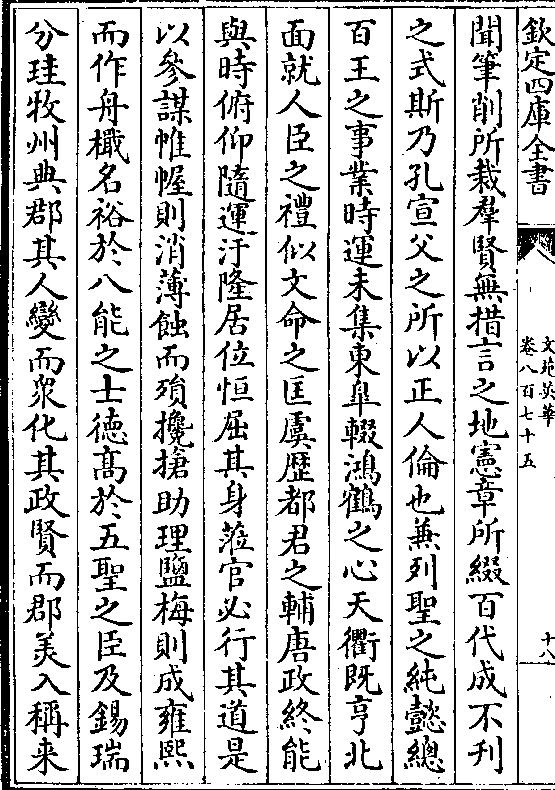 欽定四庫全書
文苑英華
卷八百七十五
十八
聞筆削所裁羣賢無措言之地憲章所綴百代成不刊
之式斯乃孔宣父之所以正人倫也兼列聖之純懿總
百王之事業時運未集東臯輟鴻鶴之心天衢既亨北
面就人臣之禮似文命之匡虞歴都君之輔唐政終能
與時俯仰隨運汙隆居位恒屈其身蒞官必行其道是
以參謀帷幄則消薄蝕而殞攙搶助理鹽梅則成雍熙
而作舟檝名裕於八能之士徳髙於五聖之臣及錫瑞
分珪牧州典郡其人變而衆化其政賢而郡美入稱来